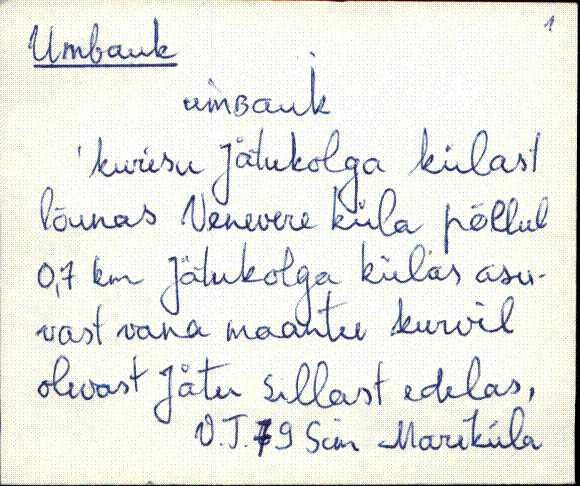 1
Umbauk
umbauk
'kurisu Jätukolga külast
lõunas Venevere küla põllul
0,7 km Jätukolga külas asu-
vast vana maantee kurvil
olevast Jätu sillast edelas,
V.T. 79 Sim Mariküla